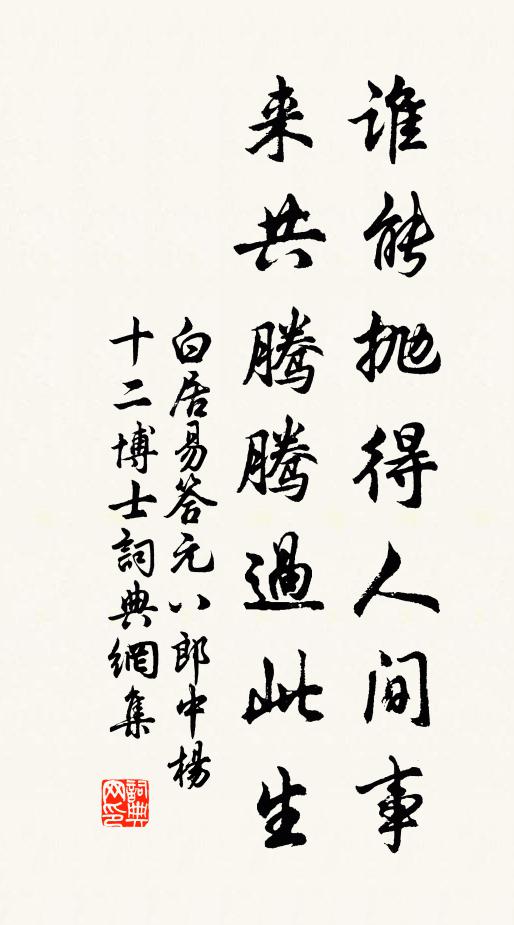 谁能抛得人间事
来共腾腾過此生
白居易答元八郎中楊
十二博士詞典網集
詞典
网印